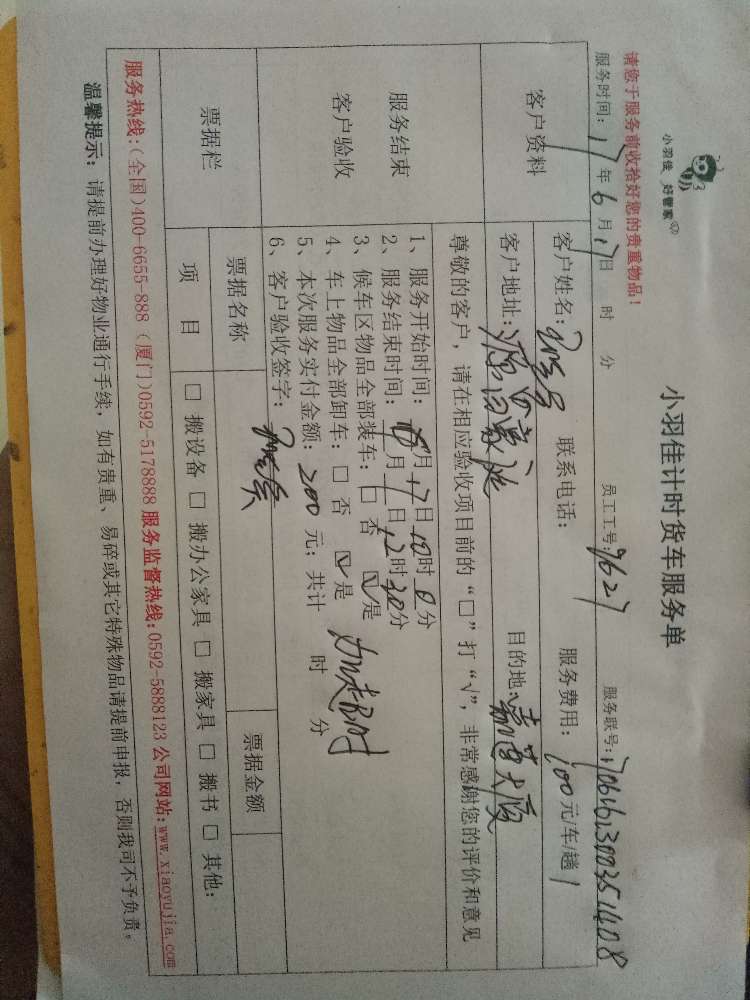 小羽佳 好管家
小羽佳计时货车服务单
请您于服务前收拾好您的贵重物品！
服务时间：17年6月17日 时 分 员工工号：9627 服务联号：
客户资料
客户姓名： 联系电话： 服务费用：100元/车/趟
客户地址： 目的地：
尊敬的客户，请在相应验收项目前的“□”打“√”，非常感谢您的评价和意见
服务结束
客户验收
1、服务开始时间： 月17日10时0分
2、服务结束时间： 月 日12时30分
3、候车区物品全部装车：□ 否 ☑ 是
4、车上物品全部卸车：□ 否 ☑ 是
5、本次服务实付金额：200元；共计 时 分
6、客户验收签字：
票据栏
票据名称 票据金额
项 目 □ 搬设备 □ 搬办公家具 □ 搬家具 □ 搬书 □ 其他：
服务热线：(全国)400-6655-888 (厦门)0592-5178888 服务监督热线：0592-5888123 公司网站：www.xiaoyujia.com
温馨提示：请提前办理好物业通行手续，如有贵重、易碎或其它特殊物品请提前申报，否则我司不予负责。